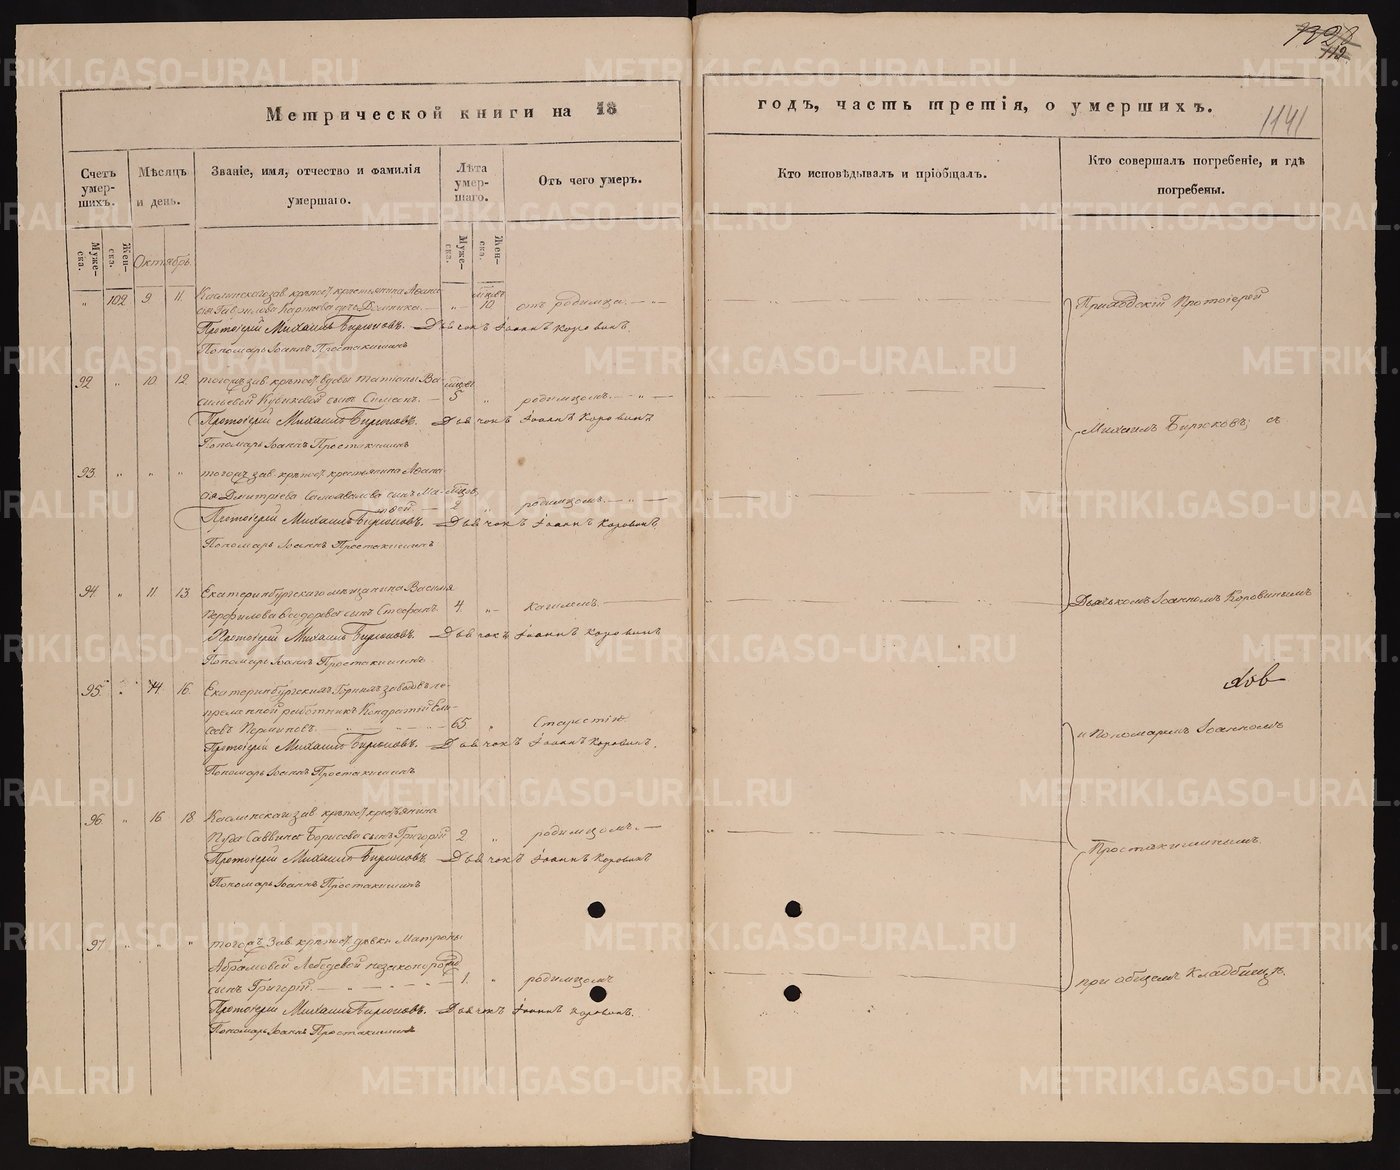 Метрической книги на 18
годъ, часть третія, о умершихъ.
1141
Счетъ умер-шихъ.
Мѣсяцъ и день.
Званіе, имя, отчество и фамилія умершаго.
Лѣта умер-шаго.
Отъ чего умеръ.
Кто исповѣдывалъ и пріобщалъ.
Кто совершалъ погребеніе, и гдѣ погребены.
Муже-ска.
Жен-ска.
Октябрь.
Муже-ска.
Жен-ска.
" 102 9 11 Каслинскаго зав. крѣпост. крестьянина Афана-
сія Гаврилова дочь " 10 отъ родимца
Протоіерей Михаилъ Бирюковъ. Дьячокъ Іоаннъ Коровинъ.
Пономарь Іоаннъ Простакишинъ
92 " 10 12 тогожъ зав. крѣпост. вдовы Татіаны Ва-
сильевой сынъ 5 " родимцомъ
Протоіерей Михаилъ Бирюковъ. Дьячокъ Іоаннъ Коровинъ
Пономарь Іоаннъ Простакишинъ
93 " " " тогожъ зав. крѣпост. крестьянина Афана-
сія Дмитріева сынъ Ма-
твей 2 " родимцомъ
Протоіерей Михаилъ Бирюковъ. Дьячокъ Іоаннъ Коровинъ
Пономарь Іоаннъ Простакишинъ
94 " 11 13 Екатеринбургскаго мѣщанина Василія
Перфилова сынъ Стефанъ 4 " кашлемъ
Протоіерей Михаилъ Бирюковъ. Дьячокъ Іоаннъ Коровинъ
Пономарь Іоаннъ Простакишинъ
95 " 14 16 Екатеринбургскихъ Горныхъ заводовъ не-
премѣнной работникъ Кондратій Ели-
сеевъ Перминовъ 65 " Старостію
Протоіерей Михаилъ Бирюковъ. Дьячокъ Іоаннъ Коровинъ.
Пономарь Іоаннъ Простакишинъ
96 " 16 18 Каслинскаго зав. крѣпост. крестьянина
Пуда Саввина Борисова сынъ Григорій 2 " родимцомъ
Протоіерей Михаилъ Бирюковъ. Дьячокъ Іоаннъ Коровинъ
Пономарь Іоаннъ Простакишинъ
97 " " " тогожъ зав. крѣпост. дѣвки Матроны
Абрамовой Лебедевой незаконорожд.
сынъ Григорій 1 " родимцомъ
Протоіерей Михаилъ Бирюковъ. Дьячокъ Іоаннъ Коровинъ.
Пономарь Іоаннъ Простакишинъ
Приходскій Протоіерей
Михаилъ Бирюковъ; съ
Дьячкомъ Іоанномъ Коровинымъ
и Пономаремъ Іоанномъ
Простакишинымъ.
при общемъ Кладбищѣ.
METRIKI.GASO-URAL.RU